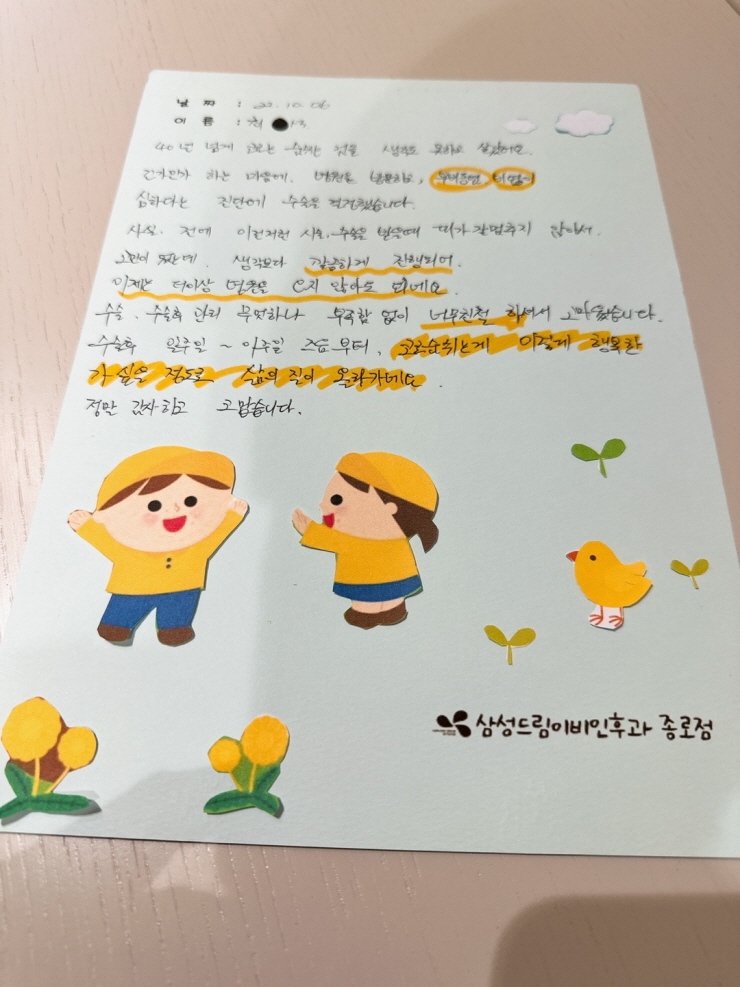 날 짜 : 22.10.06
이 름 : 최
40년 넘게 코로 숨쉬는 것을 생각도 못하고 살았어요.
하는 마음에, 병원을 방문하고, 부비동염, 비염이
심하다는 진단에 수술을 결정했습니다.
사실. 전에 이런저런 시술, 수술을 받을때 마취가 잘 멈추지 않아서.
고민이 됐는데, 생각보다 깔끔하게 진행되어.
이제는 더이상 병원을 오지 않아도 되네요.
수술. 수술후 관리 무엇하나 부족함 없이 너무친절 하셔서 고마웠습니다.
수술후 일주일 ~ 이주일 즈음부터, 코로숨쉬는게 이렇게 행복한
가 싶을 정도로 삶의 질이 올라가네요.
정말 감사하고 고맙습니다.
삼성드림이비인후과 종로점